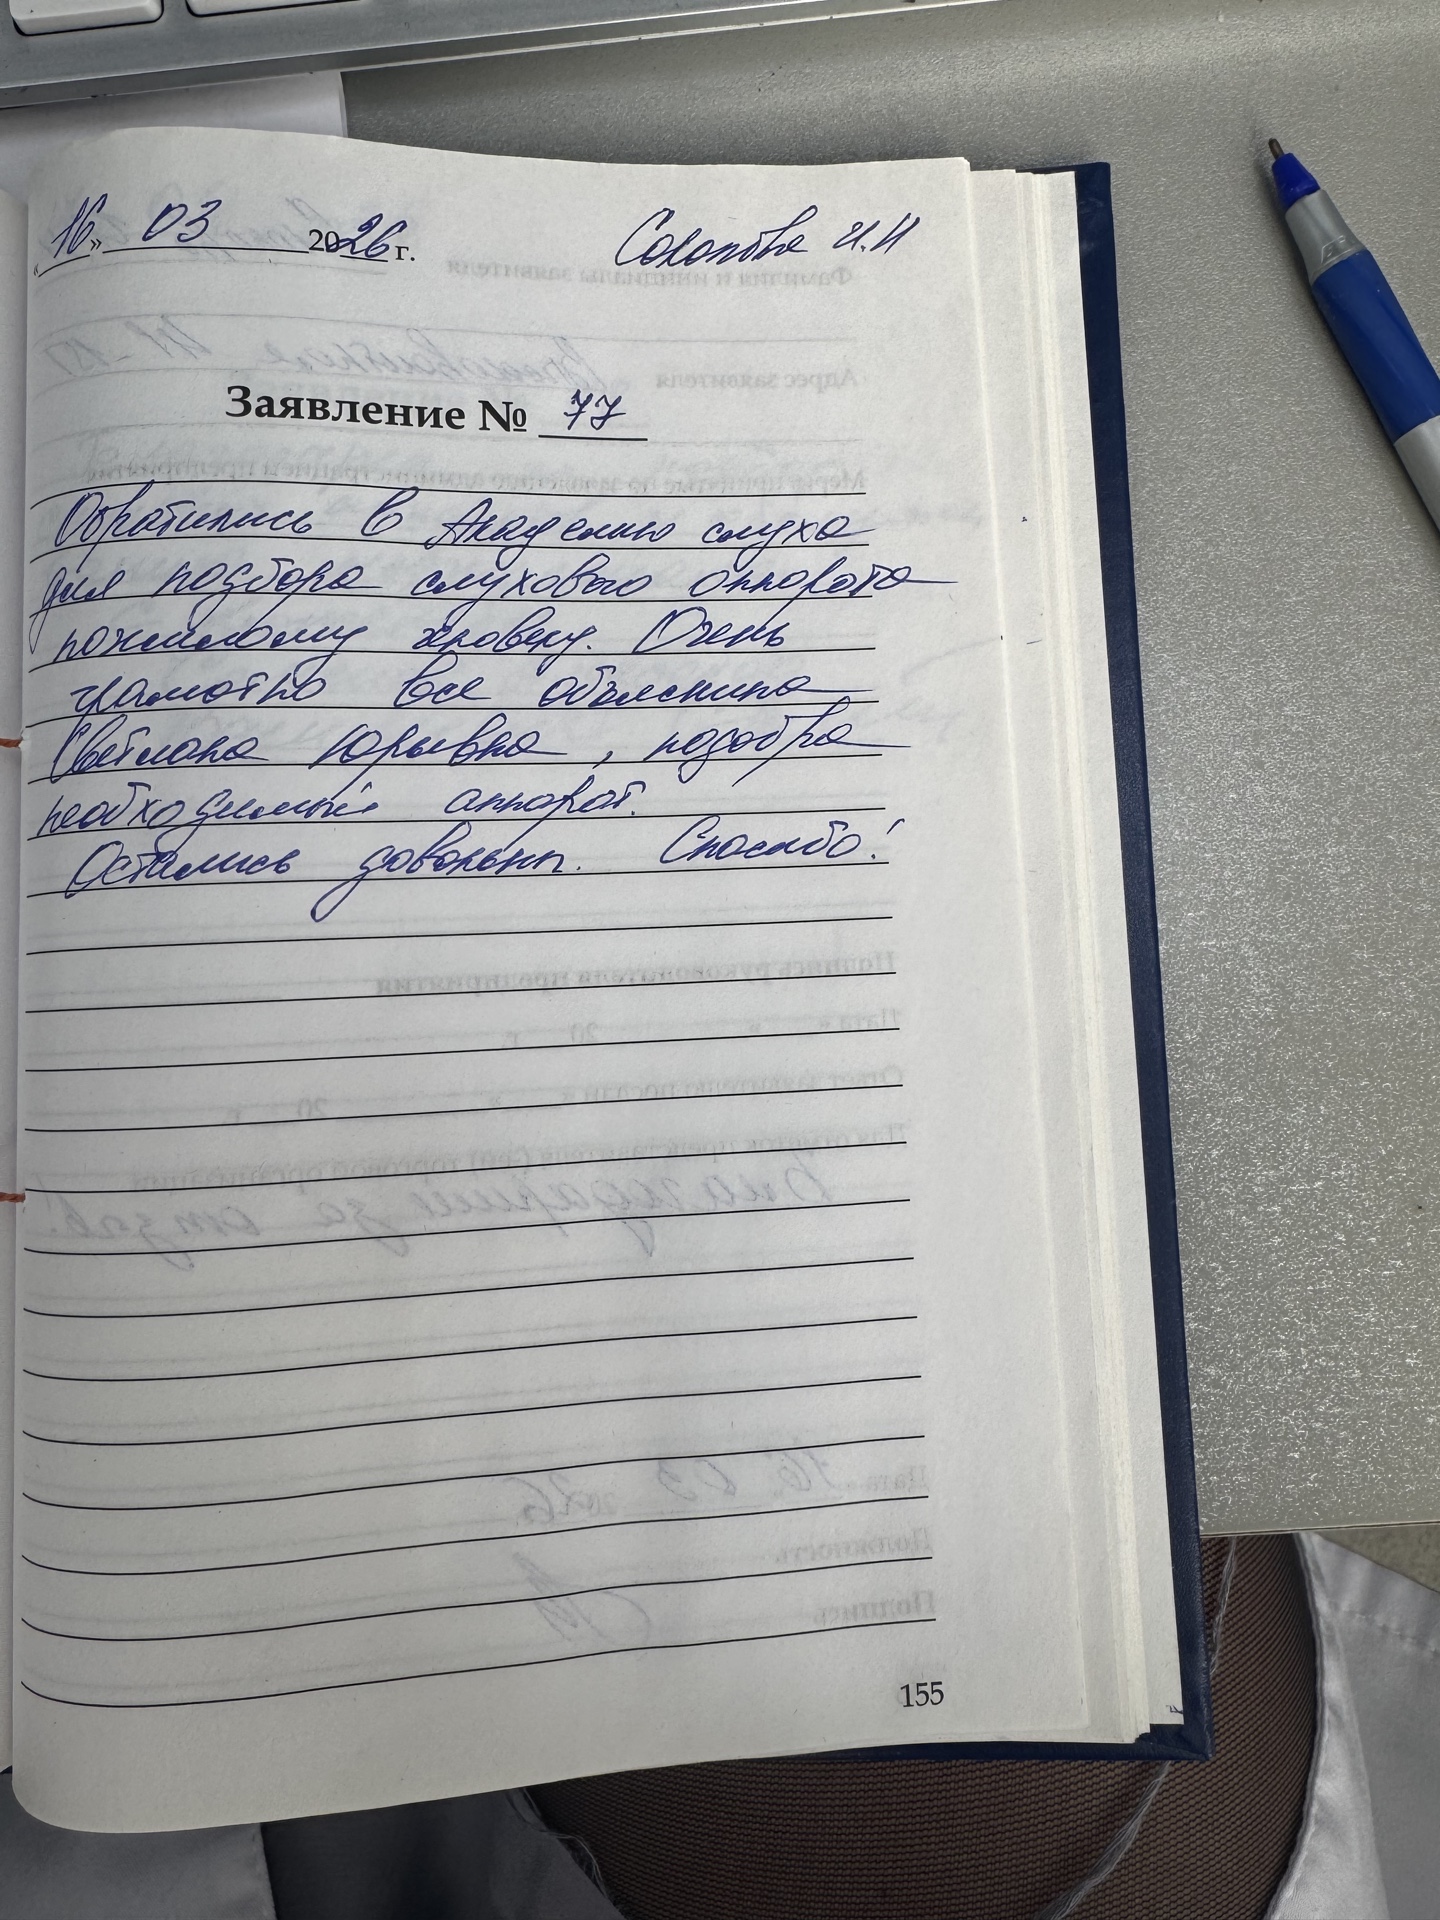 «16» 03 2026 г.
И.И
Заявление № 77
Обратились в Академию слуха
для подбора слухового аппарата
пожилому человеку. Очень
грамотно все объяснила
Светлана Юрьевна, подобра
необходимый аппарат.
Остались довольны. Спасибо!
155